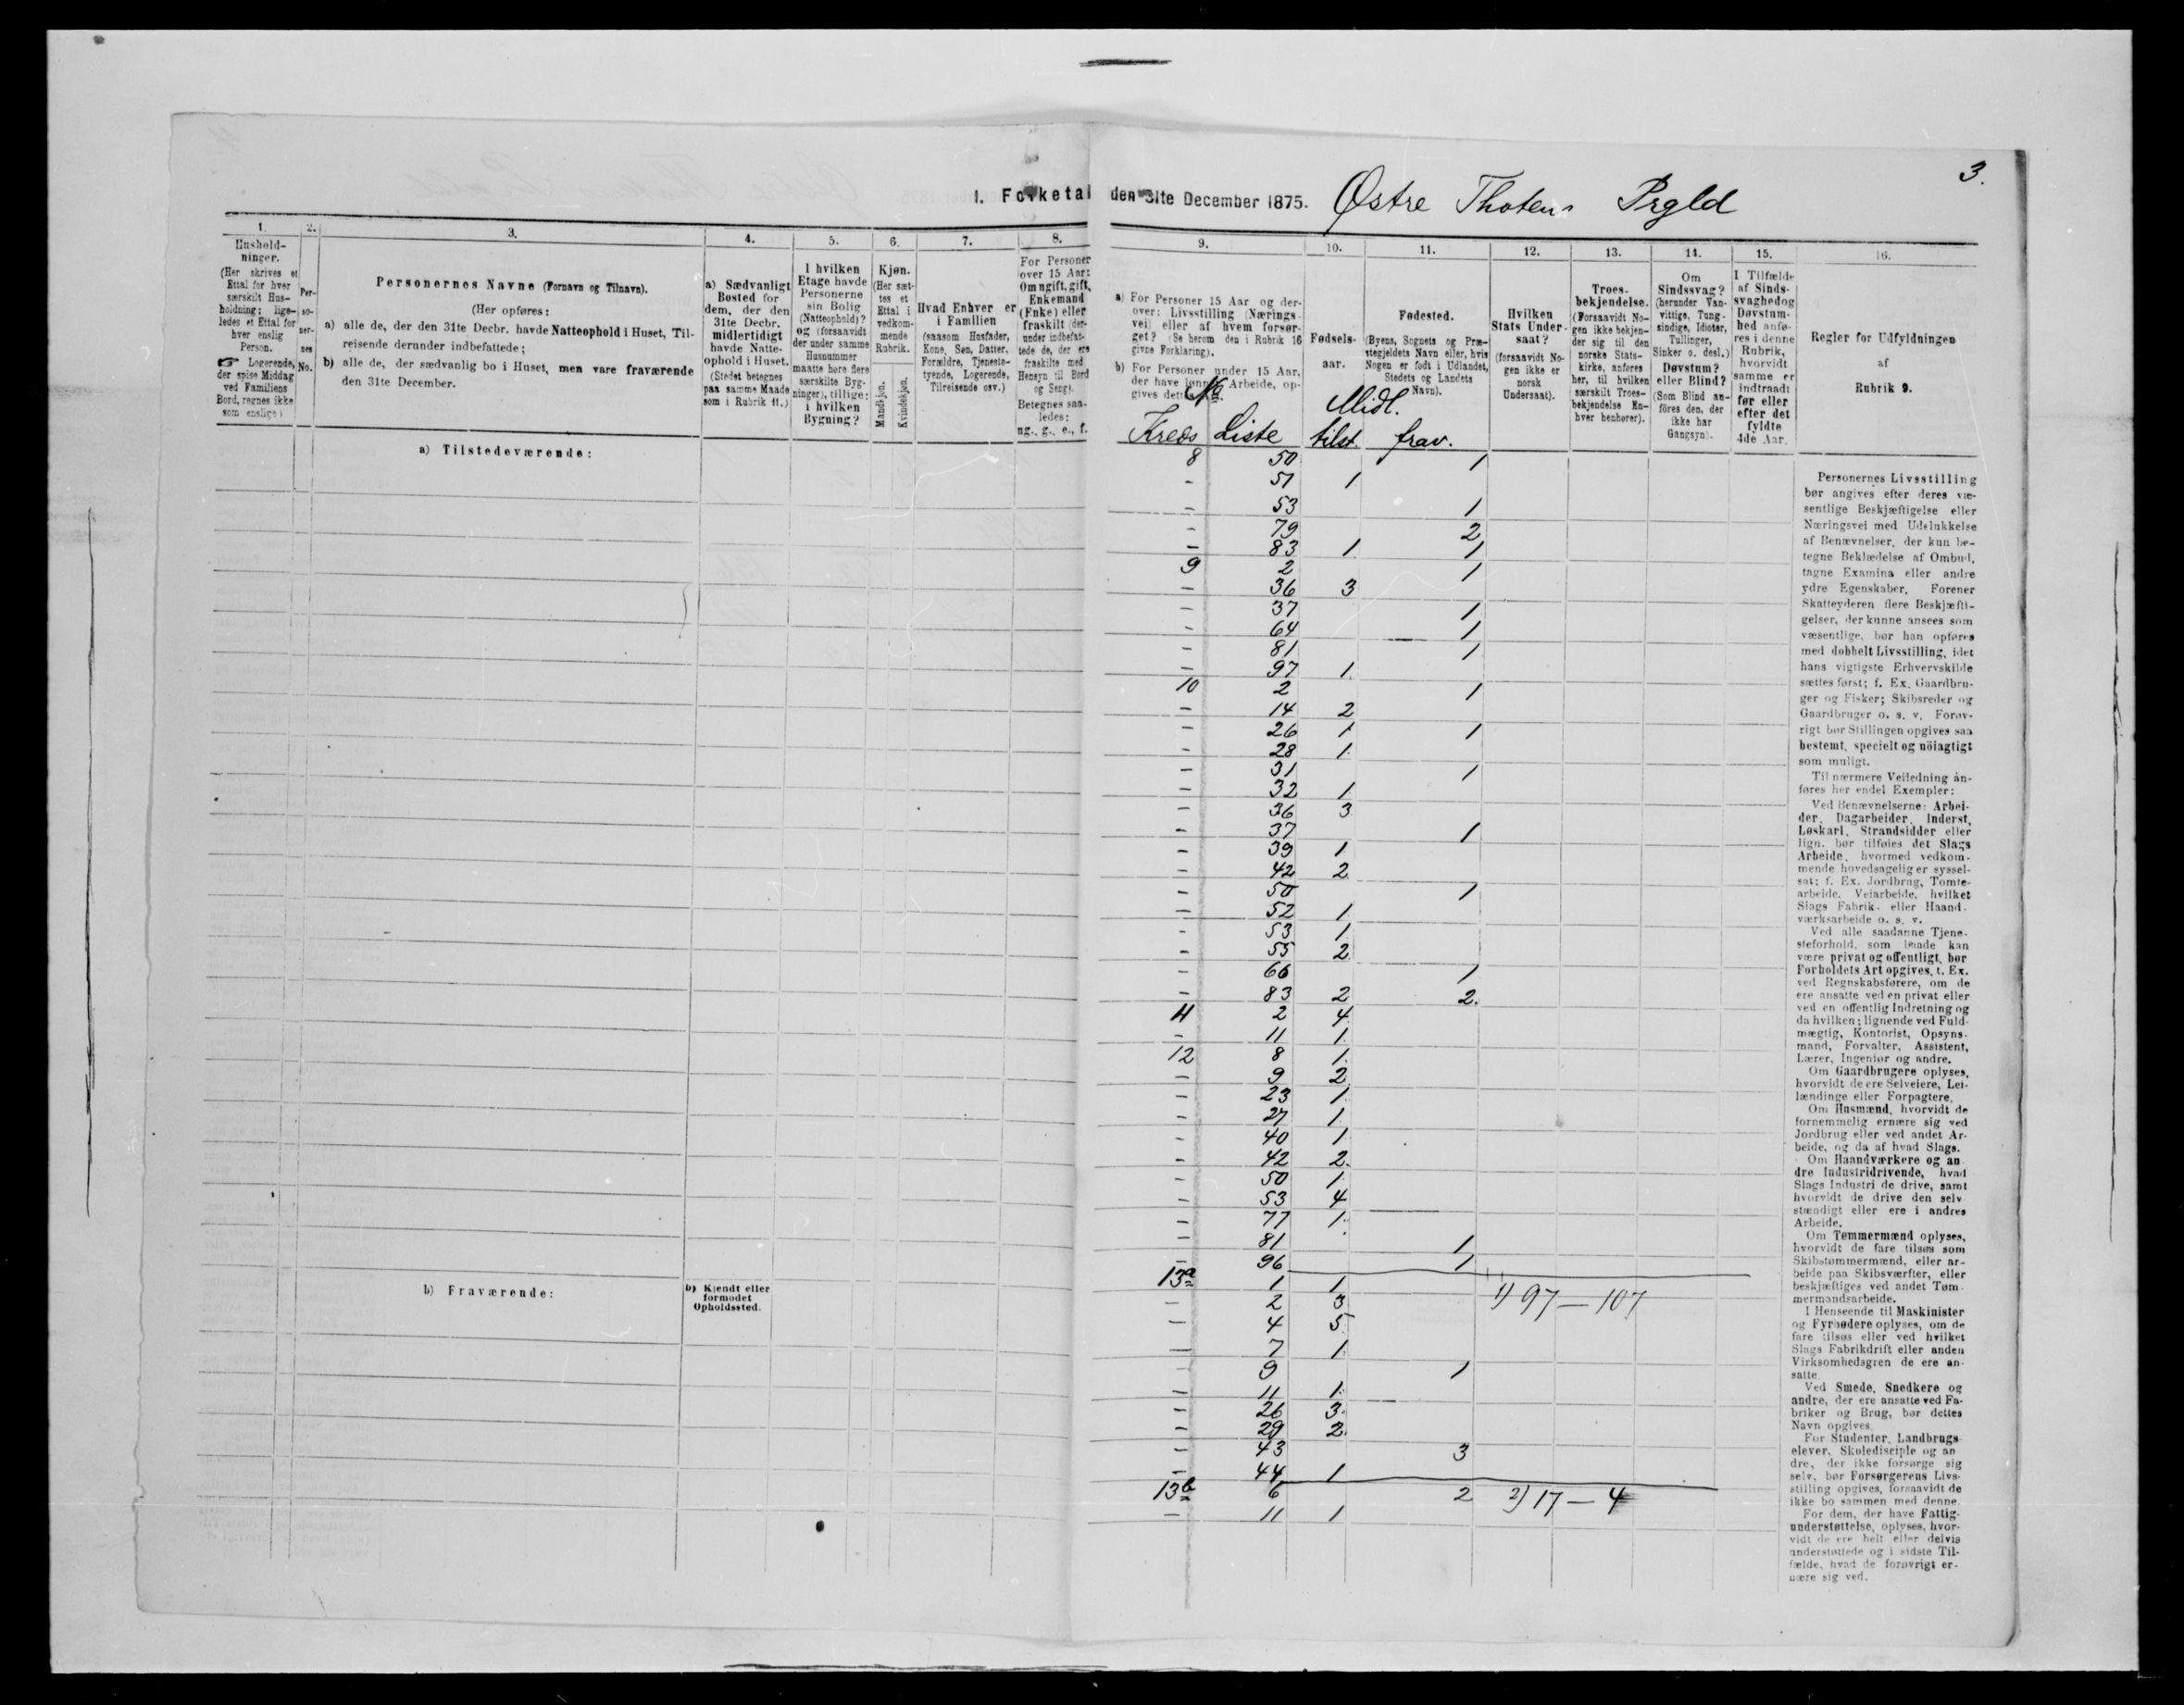 3.
I. Folketal den 31te December 1875. Østre Thotens Prgld
1.
Hushold-
ninger.
(Her skrives et
Ettal for hver
særskilt Hus-
holdning; lige-
ledes et Ettal for
hver enslig
Person.
☞ Logerende,
der spise Middag
ved Familiens
Bord, regnes ikke
som enslige)
2.
Per-
so-
ner-
nes
No.
3.
Personernes Navne (Fornavn og Tilnavn).
(Her opføres:
a) alle de, der den 31te Decbr. havde Natteophold i Huset, Til-
reisende derunder indbefattede;
b) alle de, der sædvanlig bo i Huset, men vare fraværende
den 31te December.
4.
a) Sædvanligt
Bosted for
dem, der den
31te Decbr.
midlertidigt
havde Natte-
ophold i Huset.
(Stedet betegnes
paa samme Maade
som i Rubrik 11.)
5.
I hvilken
Etage havde
Personerne
sin Bolig
(Natteophold)?
og (forsaavidt
der under samme
Husnummer
maatte høre flere
særskilte Byg-
ninger), tillige:
i hvilken
Bygning?
6.
Kjøn.
(Her sæt-
tes et
Ettal i
vedkom-
mende
Rubrik.
Mandkjøn.
Kvindekjøn.
7.
Hvad Enhver er
i Familien
(saasom Husfader,
Kone, Søn, Datter,
Forældre, Tjeneste-
tyende, Logerende,
Tilreisende osv.)
8.
For Personer
over 15 Aar:
Om ugift, gift,
Enkemand
(Enke) eller
fraskilt (der-
under indbefat-
tede de, der ere
fraskilte med
Hensyn til Bord
og Seng).
Betegnes saa-
ledes:
ug., g., e., f.
9.
a) For Personer 15 Aar og der-
over: Livsstilling (Nærings-
vei) eller af hvem forsør-
get? (Se herom den i Rubrik 16
givne Forklaring).
b) For Personer under 15 Aar,
der have lønnet Arbeide, op-
gives dette
10.
Fødsels-
aar.
11.
Fødested.
(Byens, Sognets og Præ-
stegjeldets Navn eller, hvis
Nogen er født i Udlandet,
Stedets og Landets
Navn).
12.
Hvilken
Stats Under-
saat?
(forsaavidt No-
gen ikke er
norsk
Undersaat).
13.
Troes-
bekjendelse.
(Forsaavidt No-
gen ikke bekjen-
der sig til den
norske Stats-
kirke, anføres
her, til hvilken
særskilt Troes-
bekjendelse En-
hver henhører).
14.
Om
Sindssvag?
(herunder Van-
vittige, Tung-
sindige, Idioter,
Tullinger,
Sinker o. desl.)
Døvstum?
eller Blind?
(Som Blind an-
føres den, der
ikke har
Gangsyn).
15.
I Tilfælde
af Sinds-
svaghed og
Døvstum-
hed anfø-
res i denne
Rubrik,
hvorvidt
samme er
indtraadt
før eller
efter det
fyldte
4de Aar.
16.
Regler for Udfyldningen
af
Rubrik 9.
Midl.
Kreds Liste tilst. frav.
a) Tilstedeværende:
8 50 1
- 51 1
- 53 1
- 79 2
- 83 1 1
9 2 1
- 36 3
- 37 1
- 64 1
- 81 1
- 97 1
10 2 1
- 14 2
- 26 1 1
- 28 1
- 31 1
- 32 1
- 36 3
- 37 1
- 39 1
- 42 2
- 50 1
- 52 1
- 53 1
- 55 2
- 66 1
- 83 2 2
11 2 4
- 11 1
12 8 1
- 9 2
- 23 1
- 27 1
- 40 1
- 42 2
- 50 1
- 53 4
- 77 1
- 81 1
- 96 1
b) Fraværende:
b) Kjendt eller
formodet
Opholdssted.
13a 1 1
- 2 3 1) 97 — 107
- 4 5
- 7 1
- 9 1
- 11 1
- 26 3
- 29 2
- 43 3
- 44 1
13b 6 2 2) 17 — 4
- 11 1
Personernes Livsstilling
bør angives efter deres væ-
sentlige Beskjæftigelse eller
Næringsvei med Udelukkelse
af Benævnelser, der kun be-
tegne Beklædelse af Ombud,
tagne Examina eller andre
ydre Egenskaber. Forener
Skatteyderen flere Beskjæfti-
gelser, der kunne ansees som
væsentlige, bør han opføres
med dobbelt Livsstilling, idet
hans vigtigste Erhvervskilde
sættes først; f. Ex. Gaardbru-
ger og Fisker; Skibsreder og
Gaardbruger o. s. v. Forøv-
rigt bør Stillingen opgives saa
bestemt, specielt og nöiagtigt
som muligt.
Til nærmere Veiledning an-
føres her endel Exempler:
Ved Benævnelserne: Arbei-
der, Dagarbeider, Inderst,
Løskarl, Strandsidder eller
lign. bør tilføies det Slags
Arbeide, hvormed vedkom-
mende hovedsagelig er syssel-
sat; f. Ex. Jordbrug, Tomte-
arbeide, Veiarbeide, hvilket
Slags Fabrik- eller Haand-
værksarbeide o. s. v.
Ved alle saadanne Tjene-
steforhold, som baade kan
være privat og offentligt, bør
Forholdets Art opgives, t. Ex.
ved Regnskabsførere, om de
ere ansatte ved en privat eller
ved en offentlig Indretning og
da hvilken; lignende ved Fuld-
mægtig, Kontorist, Opsyns-
mand, Forvalter, Assistent,
Lærer, Ingeniør og andre.
Om Gaardbrugere oplyses,
hvorvidt de ere Selveiere, Lei-
lændinge eller Forpagtere.
Om Husmænd, hvorvidt de
fornemmelig ernære sig ved
Jordbrug eller ved andet Ar-
beide, og da af hvad Slags.
Om Haandværkere og an-
dre Industridrivende, hvad
Slags Industri de drive, samt
hvorvidt de drive den selv-
stændigt eller ere i andres
Arbeide.
Om Tømmermænd oplyses,
hvorvidt de fare tilsøs som
Skibstømmermænd, eller ar-
beide paa Skibsværfter, eller
beskjæftiges ved andet Tøm-
mermandsarbeide.
I Henseende til Maskinister
og Fyrbødere oplyses, om de
fare tilsøs eller ved hvilket
Slags Fabrikdrift eller anden
Virksomhedsgren de ere an-
satte.
Ved Smede, Snedkere og
andre, der ere ansatte ved Fa-
briker og Brug, bør dettes
Navn opgives.
For Studenter, Landbrugs-
elever, Skoledisciple og an-
dre, der ikke forsørge sig
selv, bør Forsørgerens Livs-
stilling opgives, forsaavidt de
ikke bo sammen med denne.
For dem, der have Fattig-
understøttelse, oplyses, hvor-
vidt de ere helt eller delvis
understøttede og i sidste Til-
fælde, hvad de forøvrigt er-
nære sig ved.